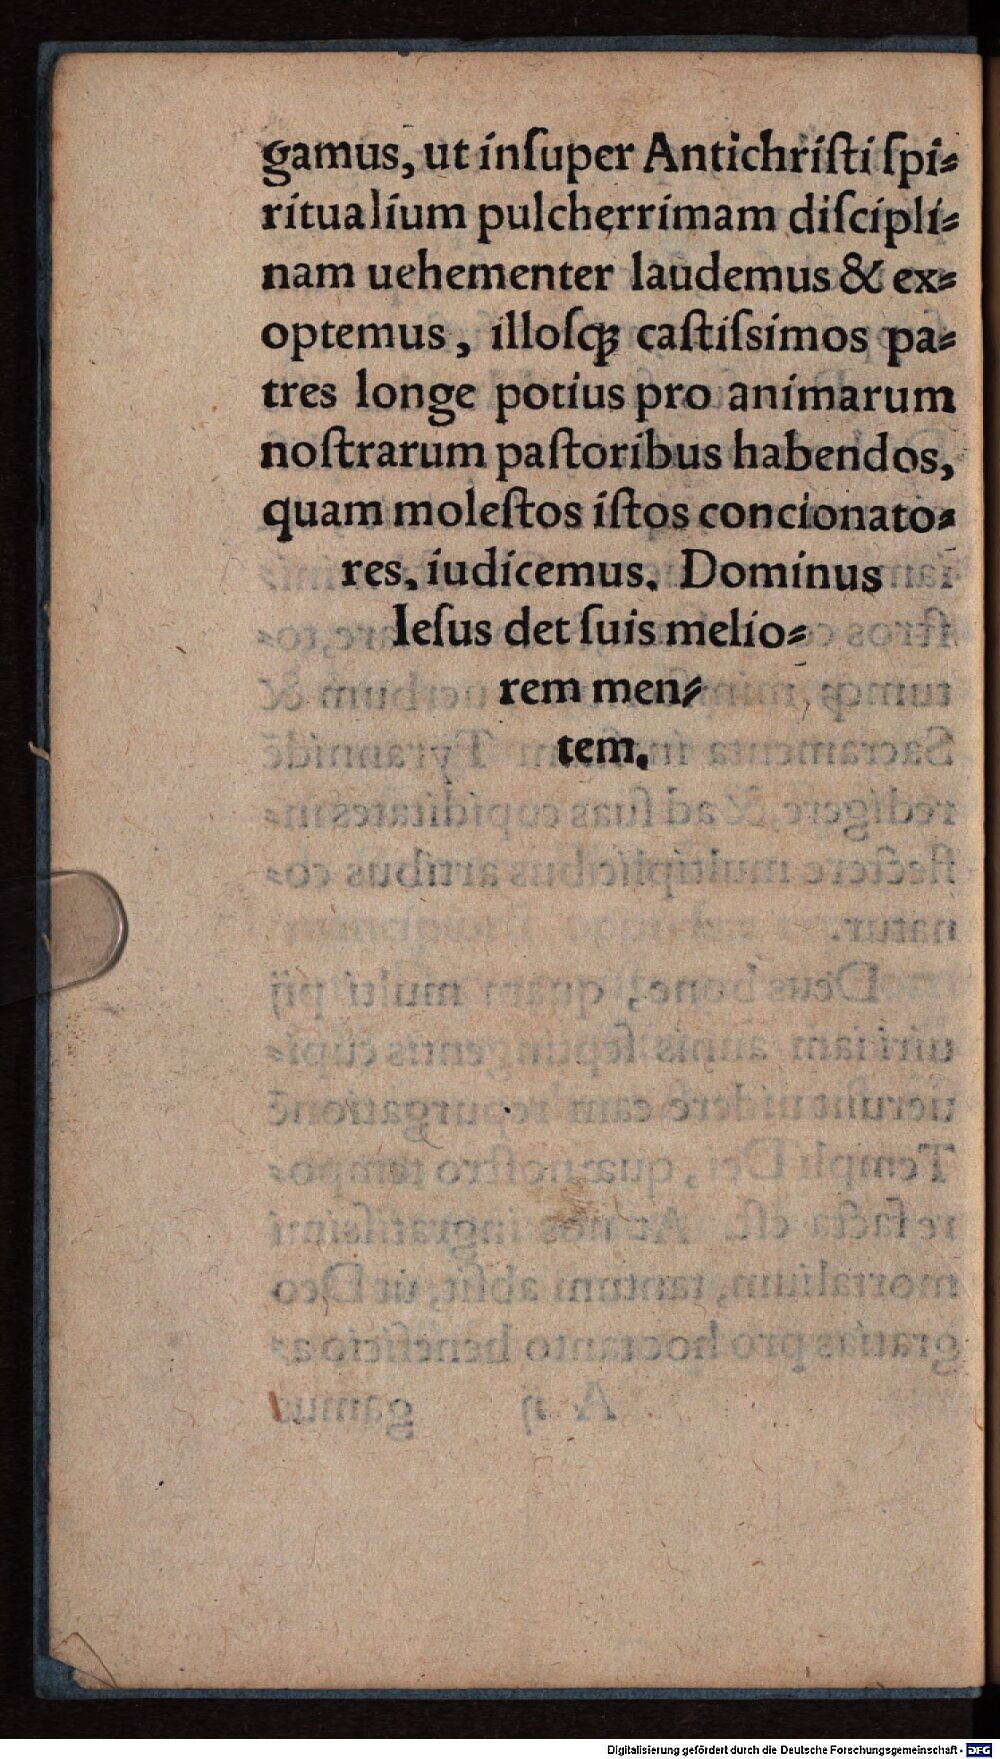 gamus, ut inſuper Antichriſti ſpi⸗
ritualium pulcherrimam diſcipli⸗
nam uehementer laudemus & ex⸗
optemus, illoſqꝫ caſtiſsimos pa⸗
tres longe potius pro animarum
noſtrarum paſtoribus habendos,
quam moleſtos iſtos concionato⸗
res, iudicemus. Dominus
Ieſus det ſuis melio⸗
rem men⸗
tem.
Digitalisierung gefördert durch die Deutsche Forschungsgemeinschaft - DFG